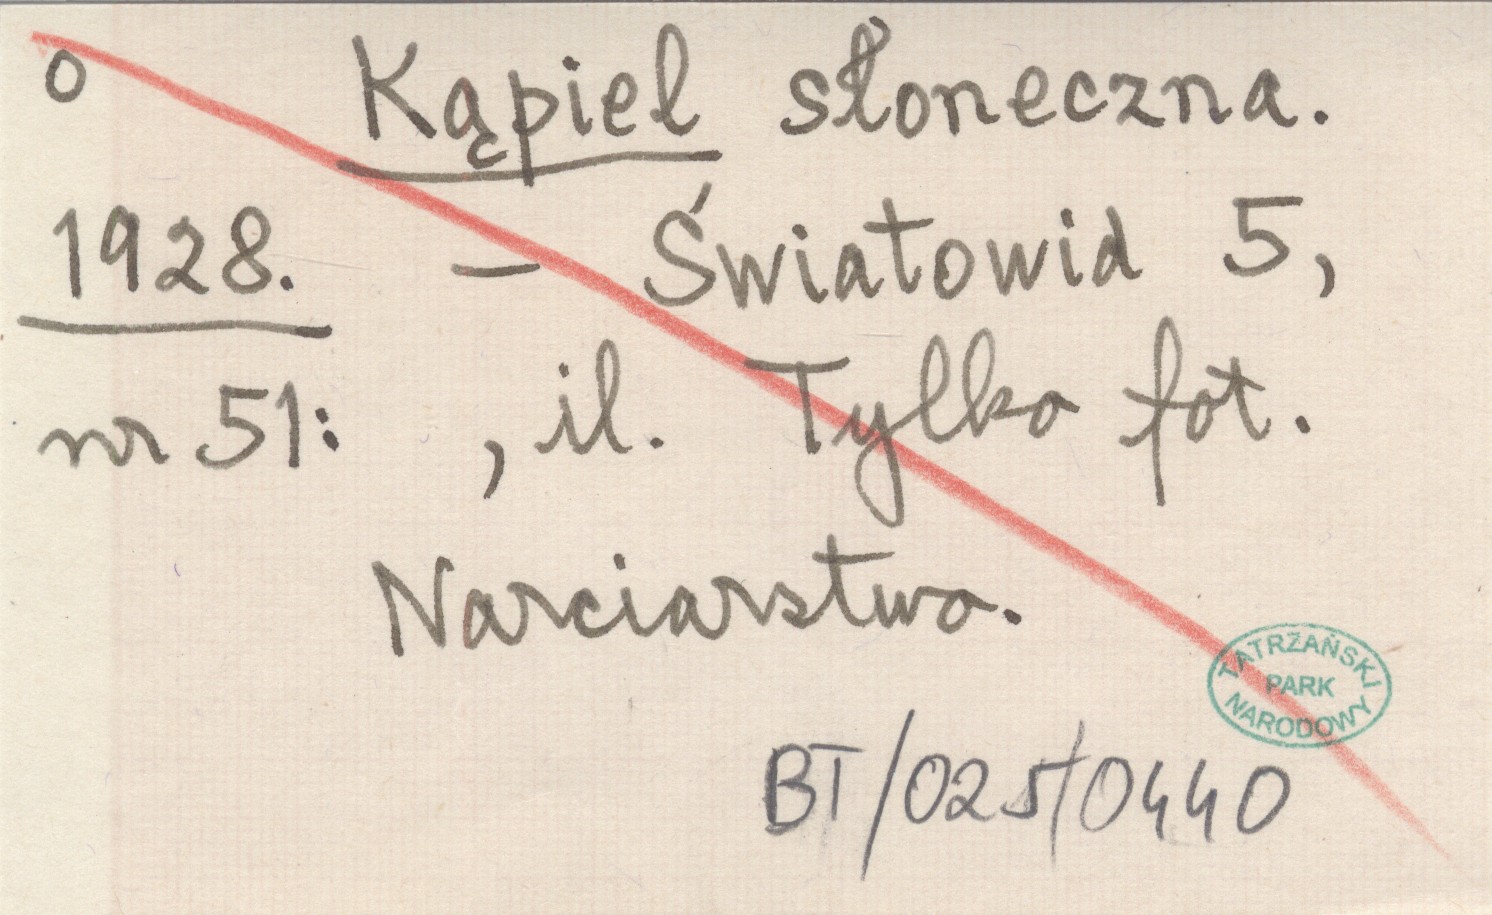 o Kąpiel słoneczna.
1928. – Światowid 5,
nr 51: , il. Tylko fot.
Narciarstwo.
TATRZAŃSKI
PARK
NARODOWY
BT/025/0440